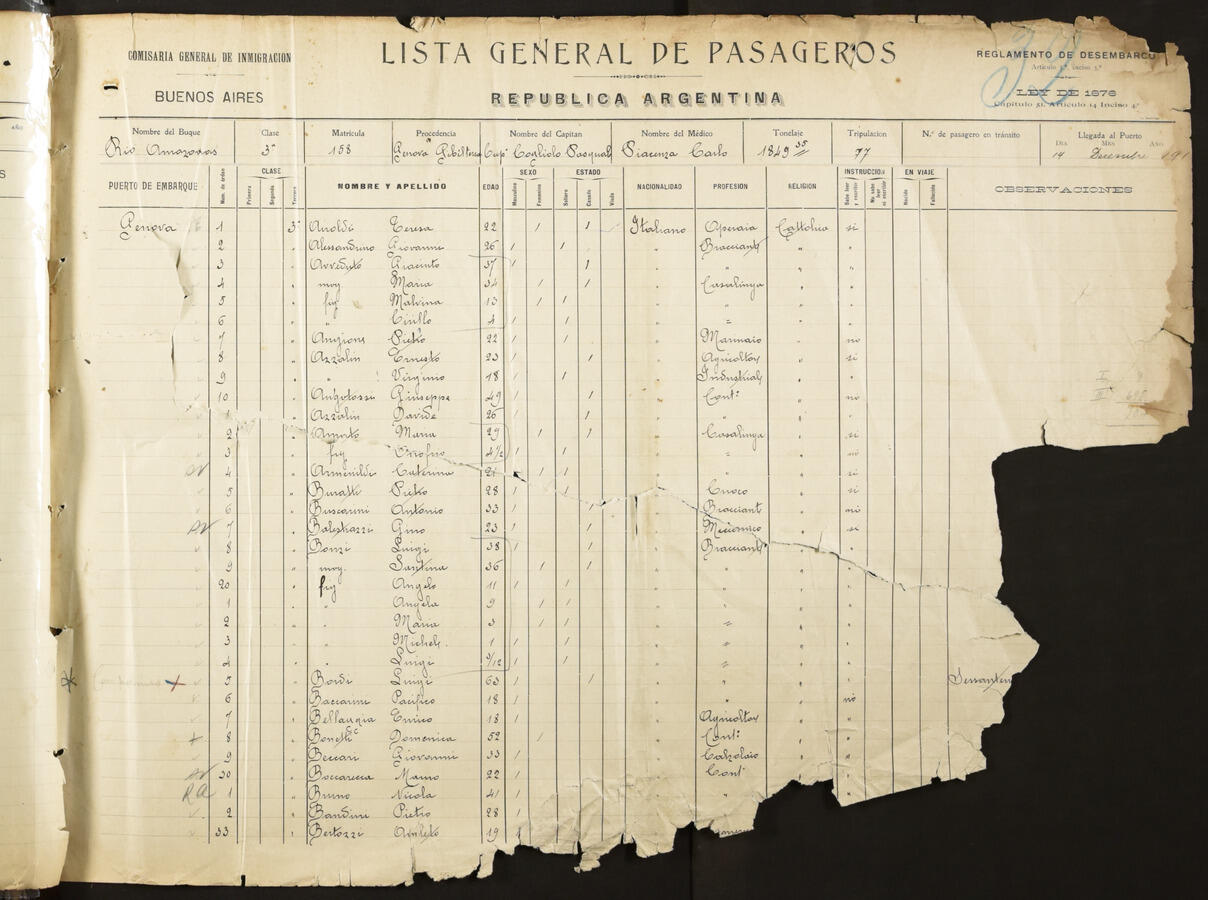 COMISARIA GENERAL DE INMIGRACION
BUENOS AIRES
LISTA GENERAL DE PASAGEROS
REPUBLICA ARGENTINA
REGLAMENTO DE DESEMBARCO
LEY DE 1876
Capitulo 51, Articulo 14 Inciso 4º
Nombre del Buque Clase Matrícula Procedencia Nombre del Capitan Nombre del Médico Tonelaje Tripulacion N.º de pasagero en tránsito Llegada al Puerto
DIA MES AÑO
Rio Amazonas 3ª 158 Genova Capº Cogliolo Pasquale Piacenza Carlo 1849 77 14 Decembre 191
PUERTO DE EMBARQUE Núm. de órden CLASE Primera Segunda Tercera NOMBRE Y APELLIDO EDAD SEXO Masculino Femenino ESTADO Soltero Casado Viudo NACIONALIDAD PROFESION RELIGION INSTRUCCION Sabe leer y escribir No sabe leer ni escribir EN VIAJE Nacido Fallecido OBSERVACIONES
Genova 1 3ª Airoldi Teresa 22 / / Italiano Operaia Cattolica si
2 " Alessandrino Giovanni 26 / / " Bracciant " "
3 " Giacinto 37 / / " " " "
4 " mog Maria 34 / / " Casalinga " "
5 " fig Malvina 13 / / " " " "
6 " " Cirillo 4 / / " " " "
7 " Angioni Pietro 22 / / " Marinaio " no
8 " Azzalin Ernesto 23 / / " Agricoltor " si
9 " " Virginio 18 / / " Industrial " "
10 " Giuseppe 49 / / " Cont: " no
1 " Azzalin Davide 26 / / " " " "
2 " Maria 29 / / " Casalinga " si
3 " fig Onofrio 4½ / / " " " no
4 " Caterina 21 / / " " " si
5 " Buratti Pietro 28 / / " Cuoco " si
6 " Buscarini Antonio 33 / / " Bracciant " no
7 " Balestrazzi Gino 23 / / " Meccanico " si
8 " Bonzi Luigi 38 / / " Bracciant " "
9 " mog. Santina 36 / / " " " "
20 " fig Angelo 11 / / " " " "
1 " " Angela 9 / / " " " "
2 " " Maria 3 / / " " " "
3 " " Michele 1 / / " " " "
4 " " Luigi 3/12 / / " " " "
5 " Bordi Luigi 63 / / " " " "
6 " Baccarini Pacifico 18 / " " " no
7 " Enrico 18 / " Agricoltor " "
8 " Bonelli Domenica 52 / " Cont: " "
9 " Beccari Giovanni 33 / " Calzolaio " "
30 " Boccacecca Marino 22 / " Cont " "
RA 1 " Bruno Nicola 41 /
2 " Bandini Pietro 28 /
33 " Bertozzi Amleto 19 /